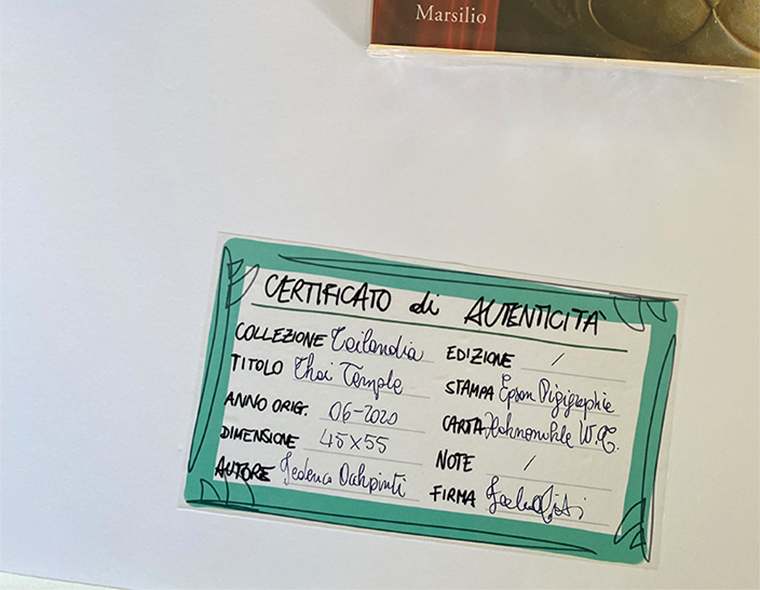 Marsilio
CERTIFICATO di AUTENTICITÀ
COLLEZIONE Tailandia
TITOLO Thai Temple
ANNO ORIG. 06-2020
DIMENSIONE 45x55
AUTORE Federico
EDIZIONE /
STAMPA Epson Digigraphie
CARTA W.T.
NOTE /
FIRMA